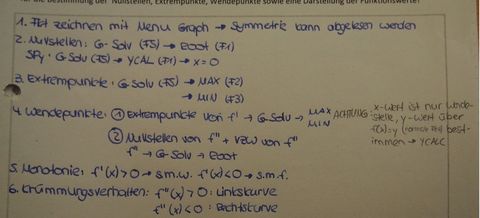 für die Bestimmung der Nullstellen, Extrempunkte, Wendepunkte sowie eine Darstellung der Funktionswerte!
1. Fkt zeichnen mit Menu Graph → Symmetrie kann abgelesen werden
2. Nullstellen: G-Solv (F5) → Root (F1)
SPy: G-Solv (F5) → YCAL (F1) → x=0
3. Extrempunkte: G-Solv (F5) → MAX (F2)
→ MIN (F3)
4. Wendepunkte: ① Extrempunkte von f' → G-Solv → MAX
MIN
ACHTUNG: x-Wert ist nur Wende-
stelle, y-Wert über
f(x)=y best-
immen → YCALC
② Nullstellen von f" + VZW von f"
f" → G-Solv → Root
5. Monotonie: f'(x)>0 → s.m.w. f'(x)<0 → s.m.f.
6. Krümmungsverhalten: f"(x)>0: Linkskurve
f"(x)<0: Rechtskurve